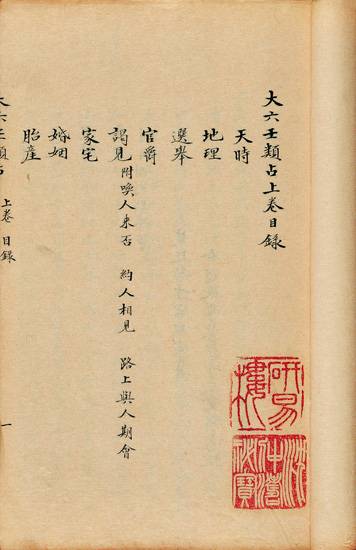 大六壬類占上卷目錄
天時
地理
選舉
官爵
謁見 附喚人來否 約人相見 路上與人期會
家宅
婚姻
胎產
大六壬類占 上卷 目錄 一
研易樓
沈仲濤秘寶